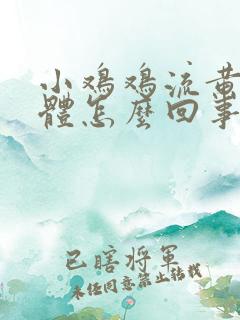 小鸡鸡流黄
體怎麼回事
已瞎將軍
未经同意禁止转载